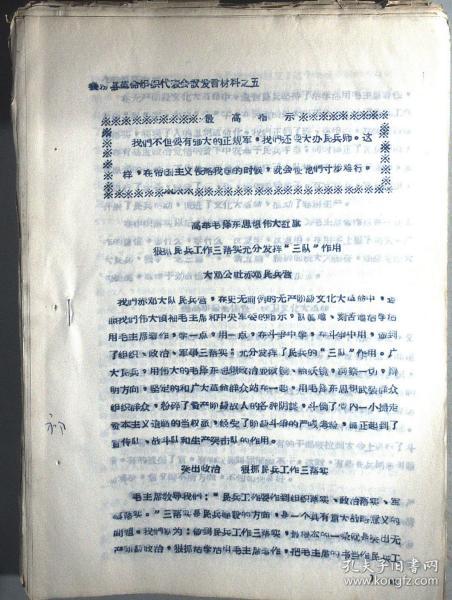 县革命组织代表会议发言材料之五
最高指示
我們不但要有强大的正規軍，我們还要大办民兵师。这
样，在帝国主义侵略我国的时候，就会使他們寸步难行。
高举毛澤东思想伟大紅旗
狠抓民兵工作三落实充分发揮“三队”作用
大邓公社赤邓民兵营
我們赤邓大队民兵营，在史无前例的无产阶級文化大革命中，遵
照我們伟大領袖毛主席和中央軍委的指示，认真、刻苦活学活
用毛主席著作，学一点，用一点，在斗爭中学，在斗爭中用，做到
了組织、政治、軍事三落实；充分发揮了民兵的“三队”作用。广
大民兵，用伟大的毛澤东思想洞察一切，辨
明方向，坚定的和广大革命群众站在一起，用毛澤东思想武装群众
組织群众，粉碎了資产阶級敌人的各种阴謀，斗倒了党内一小撮走
資本主义道路的当权派，經受了阶級斗爭的严峻考驗，真正起到了
宣传队、战斗队和生产突击队的作用。
突出政治 狠抓民兵工作三落实
毛主席教导我們：“民兵工作要作到組织落实、政治落实、軍
事落实。”三落实是民兵建設的方向，是一个具有重大战略意义的
問題。我們认为：做到民兵工作三落实，最根本的一条就是突出无
产阶級政治，狠抓活学活用毛主席著作，把毛主席的书当作民兵工
孔夫子旧书网
www.kongfz.com